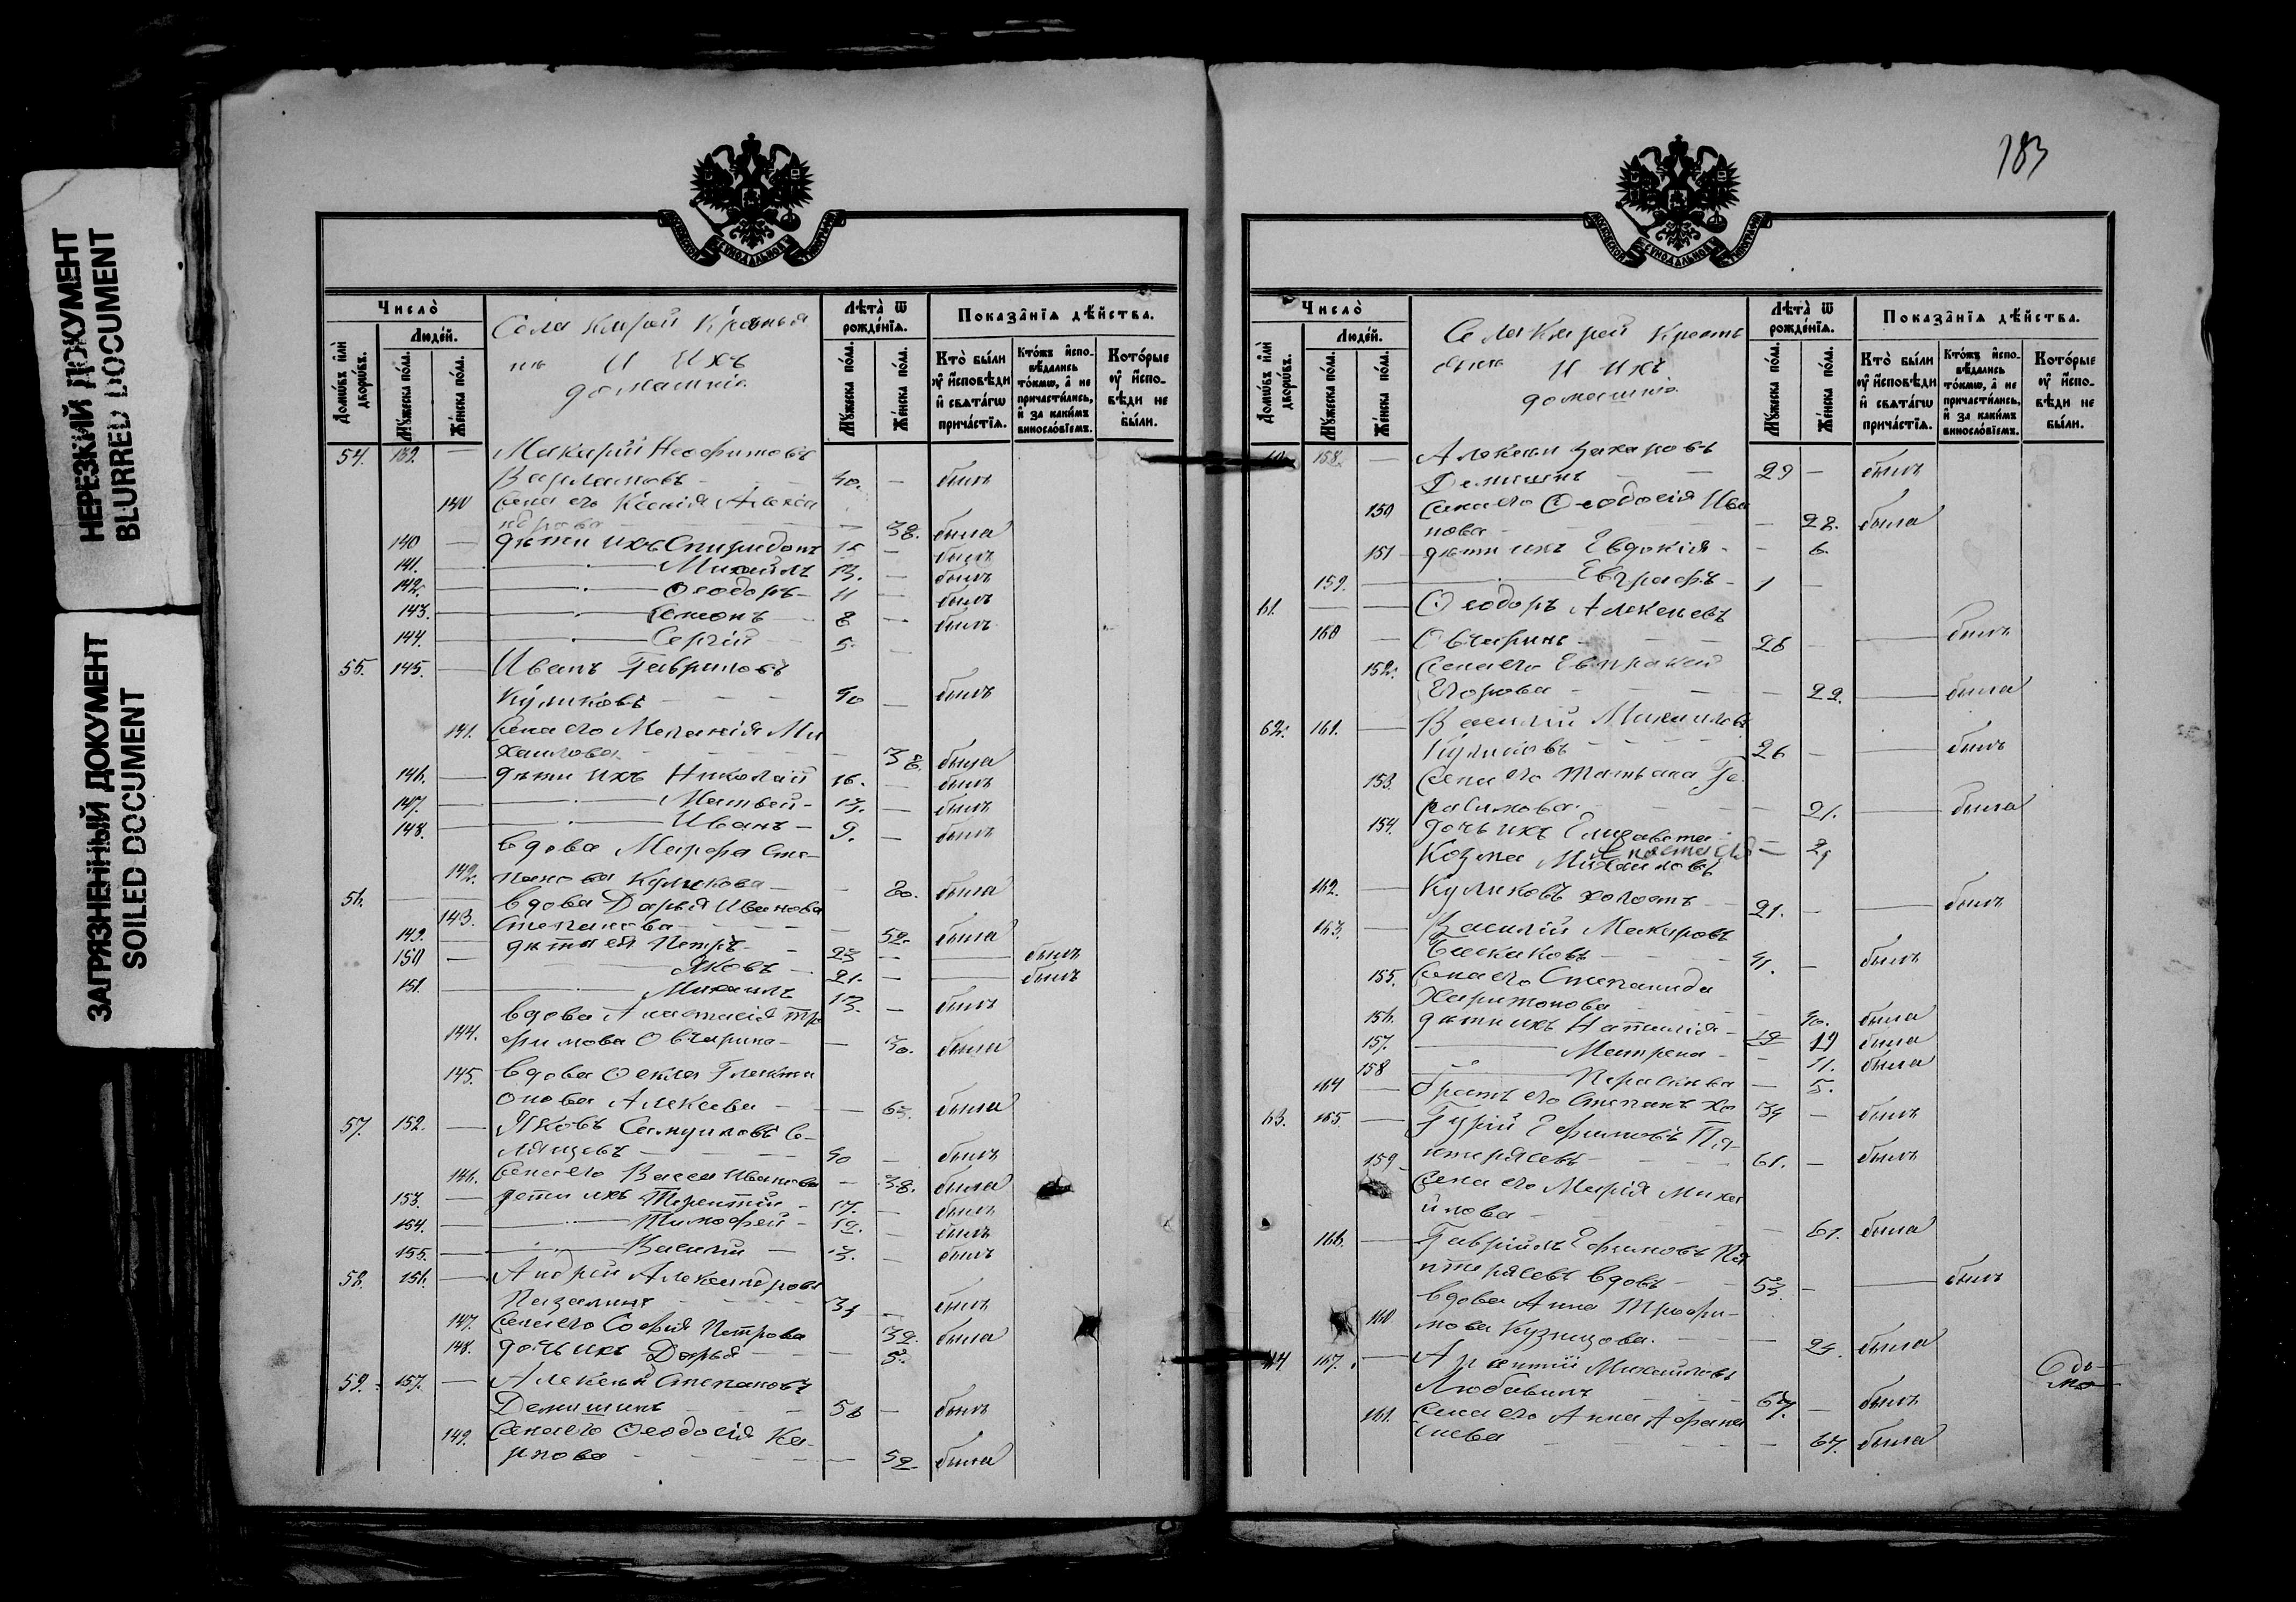 НЕРЕЗКИЙ ДОКУМЕНТ
BLURRED DOCUMENT
ЗАГРЯЗНЕННЫЙ ДОКУМЕНТ
SOILED DOCUMENT
Число̀
Людей.
Домѡвъ илѝ дворѡвъ.
Мꙋжеска пола.
Женска пола.
Села Кирай Крестья
не И Ихъ
домашнiе
Лѣта̀ ѿ рождéнїѧ.
Мꙋжеска пола.
Женска пола.
Показáнїѧ дѣйства.
Кто̀ были ᲂу҆ и҆сповѣди и҆ свѧтáгѡ причáстїѧ.
Кто́жъ и҆сповѣдались то́кмѡ, а҆ не причасти́лись, и҆ за каки́мъ винослóвїемъ.
Кото́рые ᲂу҆ и҆сповѣди не бы́ли.
54. 139. — Макарий Неофитовъ
Варламовъ 40. — былъ
140 Жена его Ксенiя Алекса
ндрова — 38. была
140 — дѣти ихъ Спиридонъ 15 — былъ
141. — Михаилъ 13. — былъ
142. — Ѳеодоръ 11 — былъ
143. — Семенъ 8 — былъ
144. — Сергiй 5. —
55. 145. — Иванъ Гавриловъ
Куликовъ 40 — былъ
141. Жена его Меланiя Ми
хаилова — 38. была
146. — дѣти ихъ Николай 16. — былъ
147. — Матвей 13. — былъ
148. — Иванъ 9. — былъ
вдова Марфа Сте
142. панова Куликова — 80. была
56. вдова Дарья Иванова
143. Степанова — 52. была
149. — дѣти ея Петръ 23 — былъ
150 — Яковъ 21. — былъ
151. — Михаилъ 13. — былъ
вдова Анастасiя Тро
144. фимова Овчарина — 30. была
145. вдова Ѳекла Галактi
онова Алексева — 65. была
57. 152. — Яковъ Самуиловъ
40 — былъ
146. Жена его Васса Иванова — 38. была
153. — дети ихъ Терентiй 17. — былъ
154. — Тимофей 12. — былъ
155. — Василiй — былъ
58. 156. — Андрей Александровъ
34 — былъ
147. Жена его Софiя Петрова 32. была
148. дочь ихъ Дарья — 5.
59. 157. — Алексѣй Степановъ
Демишинъ 56 — былъ
149. Жена его Ѳеодосiя Ка
рпова — 52. была
183
Число̀
Людей.
Домѡвъ илѝ дворѡвъ.
Мꙋжеска пола.
Женска пола.
Села Кирей Кресть
яне И ихъ
домашнiе
Лѣта̀ ѿ рождéнїѧ.
Мꙋжеска пола.
Женска пола.
Показáнїѧ дѣйства.
Кто̀ были ᲂу҆ и҆сповѣди и҆ свѧтáгѡ причáстїѧ.
Кто́жъ и҆сповѣдались то́кмѡ, а҆ не причасти́лись, и҆ за каки́мъ винослóвїемъ.
Кото́рые ᲂу҆ и҆сповѣди не бы́ли.
60. 158. — Алексѣй Захаровъ
Демишинъ 29 — былъ
150 Жена его Ѳеодосiя Ива
нова — 28. была
151 — дѣти ихъ Евдокiя — 6.
159. — Евграфъ 1 —
61. — Ѳеодоръ Алексеевъ
160 — Овчаринъ 26 — былъ
152. Жена его
Егорова — 22. была
62. 161. — Василiй Михаиловъ
Куликовъ 26 — былъ
153. Жена его Татьяна Ге
расимова — 21. была
154. дочь ихъ Елизавета
Анастасiя — 2
Козма Михаиловъ
162. — Куликовъ холостъ 21. — былъ
163. — Василiй Макаровъ
41. — былъ
155. Жена его Степанида
Харитонова — 40. была
156. дѣти ихъ Наталiя 19 19 была
157. — Матрена — 11. была
158 — Парасковiя — 5.
164 — Братъ его Степанъ хо 34 — былъ
63. 165. — Гурiй Ефимовъ Пя
61. — былъ
159 Жена его Марiя Миха
йлова — 61. была
166. — Гаврiилъ Ефимовъ Пя
вдовъ 53. — былъ
160 вдова Анна Трофи
мова Кузнецова — 24. была
64. 167. — Михайловъ
Любавинъ 67. — былъ
161. Жена его Анна Афана
сиева — 67. была